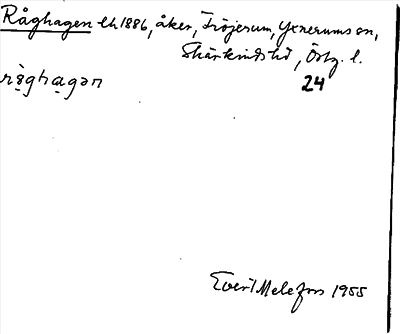 Råghagen lh 1886, åker, Tröjerum, Yxnerums sn,
Skärkinds hd, Östg. l.
24
råghagən
Evert Melefors 1955